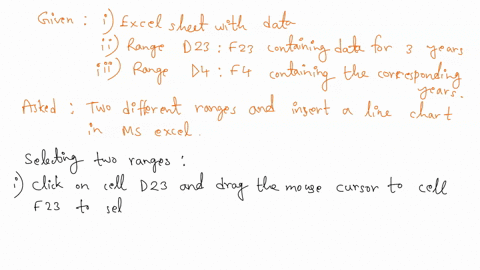 Given : i) Excel sheet with data
ii) Range D23 : F23 containing data for 3 years
iii) Range D4 : F4 containing the corresponding
years.
Asked : Two different ranges and insert a line chart
in MS excel.
Selecting two ranges :
i) Click on cell D23 and drag the mouse cursor to cell
F23 to sel